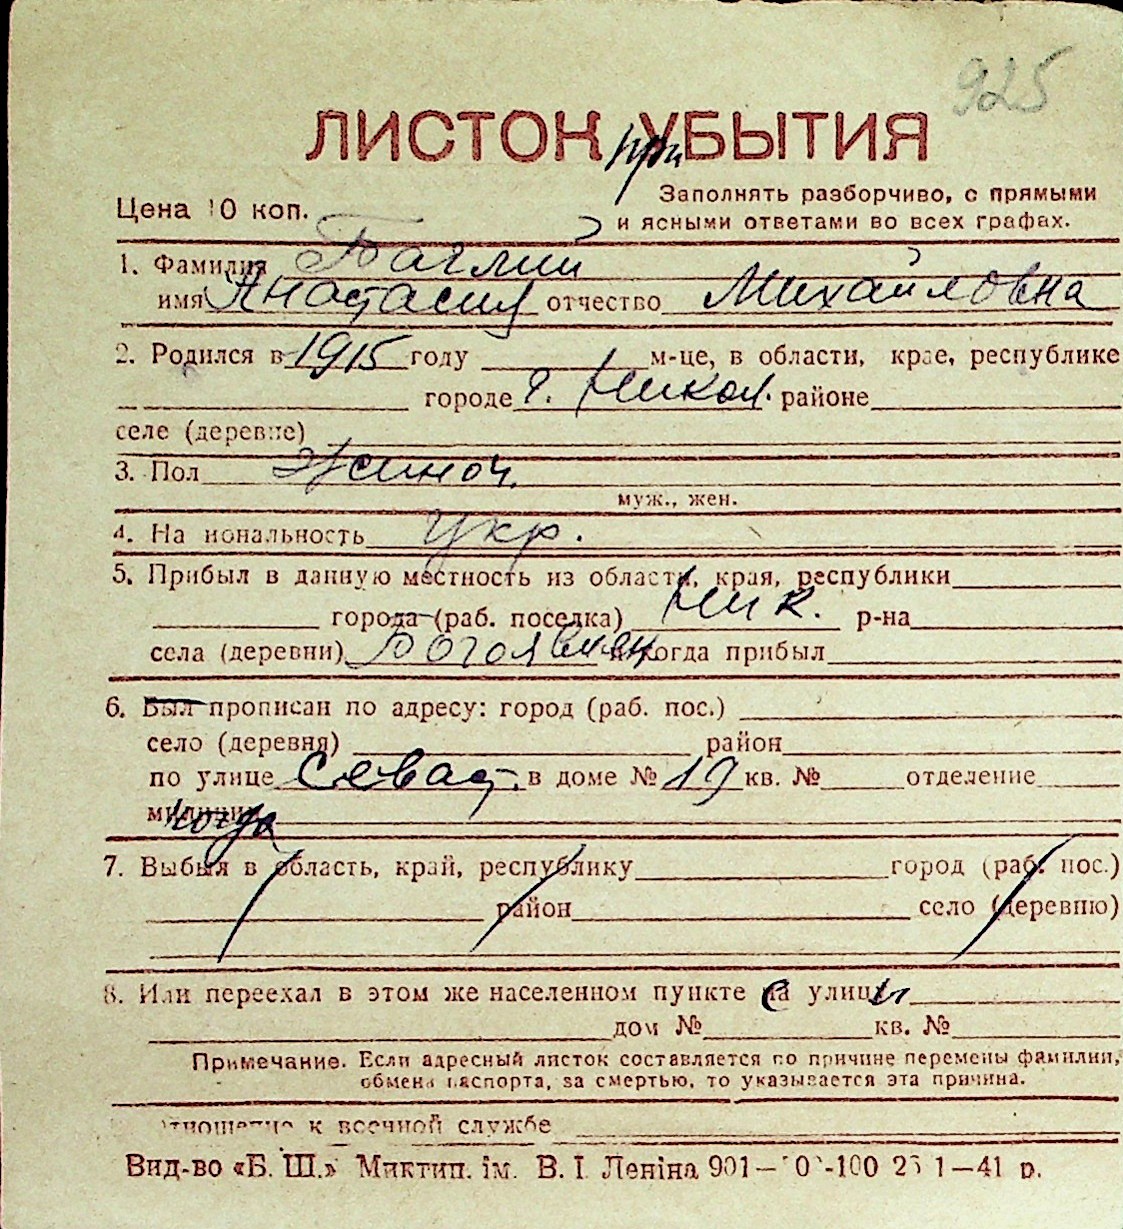 925
ЛИСТОК при УБЫТИЯ
Заполнять разборчиво, с прямыми
Цена 10 коп.
и ясными ответами во всех графах.
1. Фамилия Баглий
имя Анастасия отчество Михайловна
2. Родился в 1915 году м-це, в области, крае, республике
городе г. Никол. районе
селе (деревне)
3. Пол жиноч.
муж., жен.
4. Национальность Укр.
5. Прибыл в данную местность из области, края, республики
города (раб. поселка) Ник. р-на
села (деревни) Богоявлен и когда прибыл
6. Был прописан по адресу: город (раб. пос.)
село (деревня) район
по улице Севаст. в доме № 19 кв. № отделение
милиции когда
7. Выбыл в область, край, республику город (раб. пос.)
район село (деревню)
8. Или переехал в этом же населенном пункте с улицы
дом № кв. №
Примечание. Если адресный листок составляется по причине перемены фамилии,
обмена паспорта, за смертью, то указывается эта причина.
Отношение к военной службе
Вид-во «Б. Ш.» Миктип. ім. В. І. Леніна 901— -100 1—41 р.